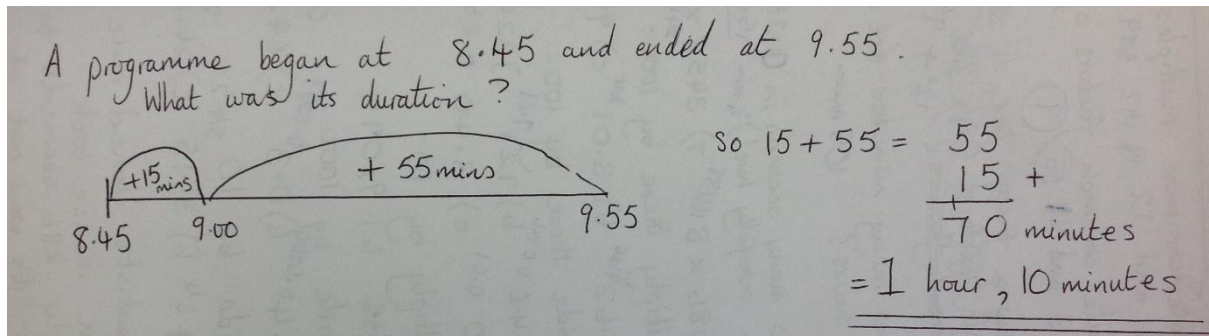 A programme began at 8.45 and ended at 9.55.
What was its duration?
+15 mins
+ 55 mins
8.45
9.00
9.55
so 15 + 55 =
55
15 +
1
70 minutes
= 1 hour, 10 minutes